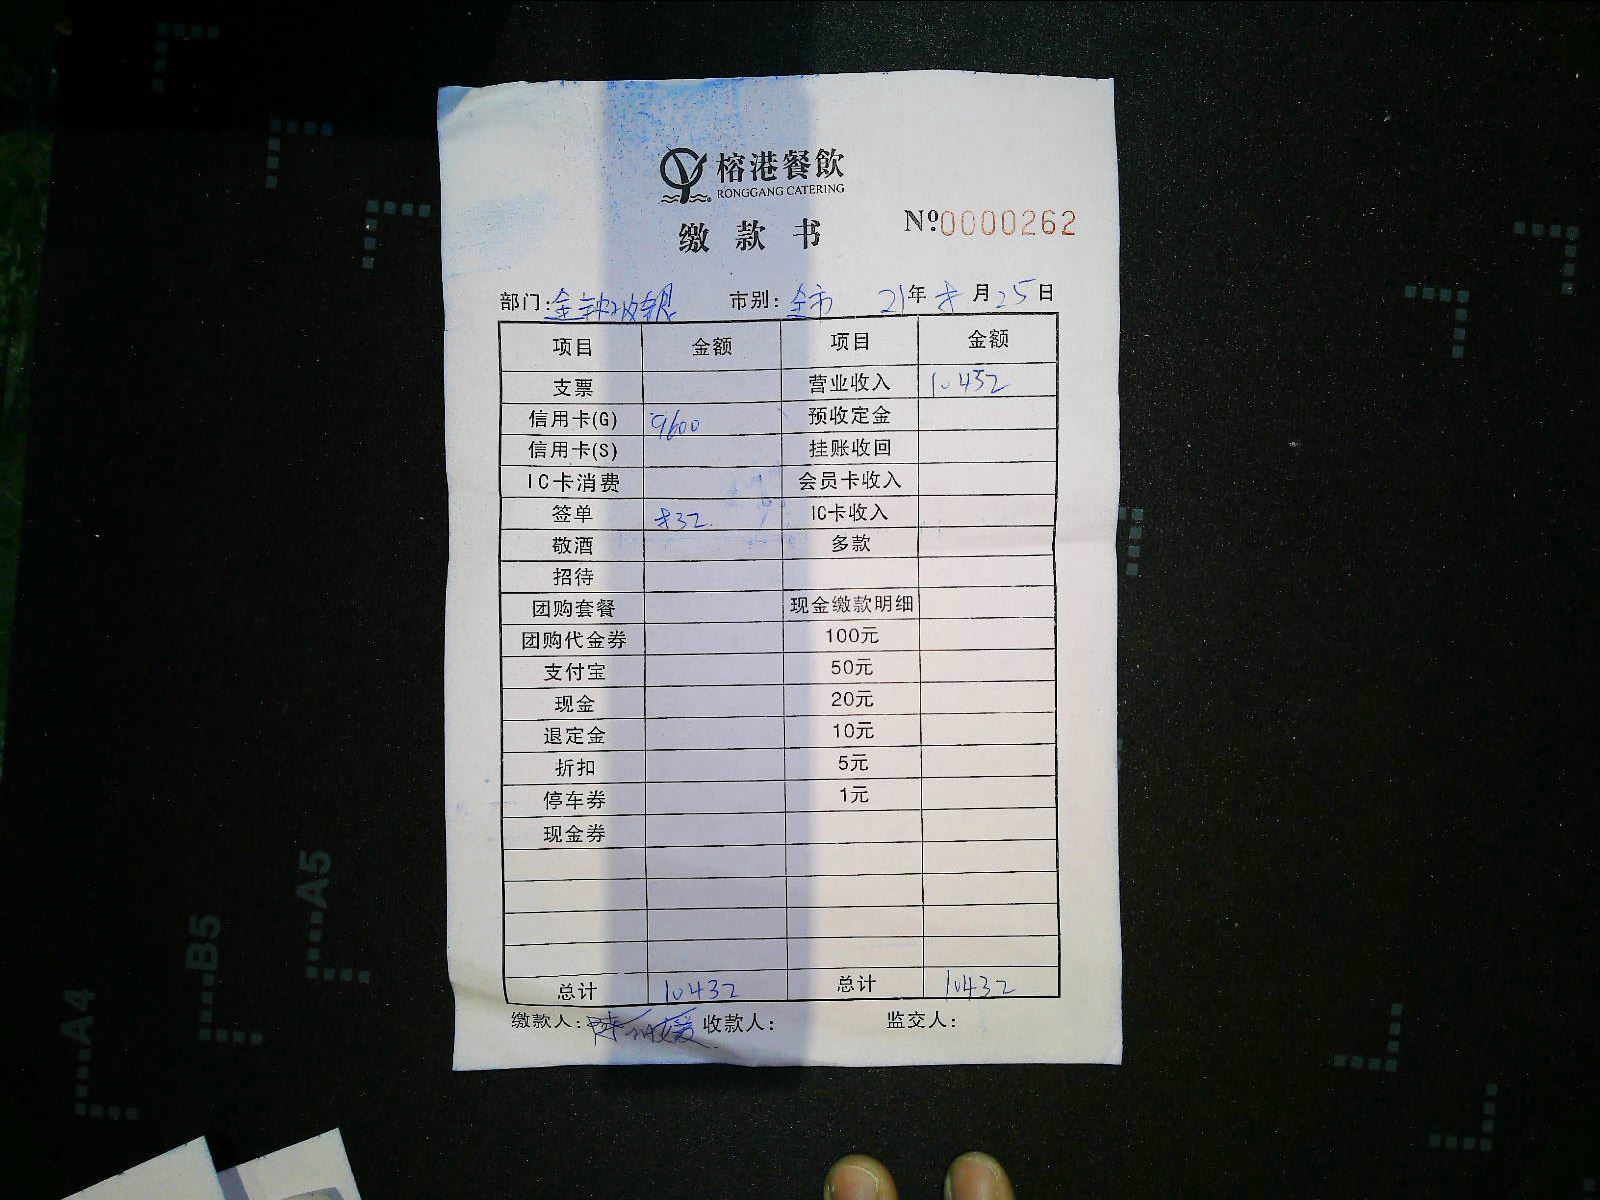 榕港餐飲
RONGGANG CATERING
缴款书
Nº 0000262
部门: 市别: 全市 21年 8月25日
项目 金额 项目 金额
支票 营业收入 10432
信用卡(G) 9600 预收定金
信用卡(S) 挂账收回
IC卡消费 会员卡收入
签单 832 IC卡收入
敬酒 多款
招待
团购套餐 现金缴款明细
团购代金券 100元
支付宝 50元
现金 20元
退定金 10元
折扣 5元
停车券 1元
现金券
总计 10432 总计 10432
缴款人: 收款人: 监交人:
A4
B5
A5